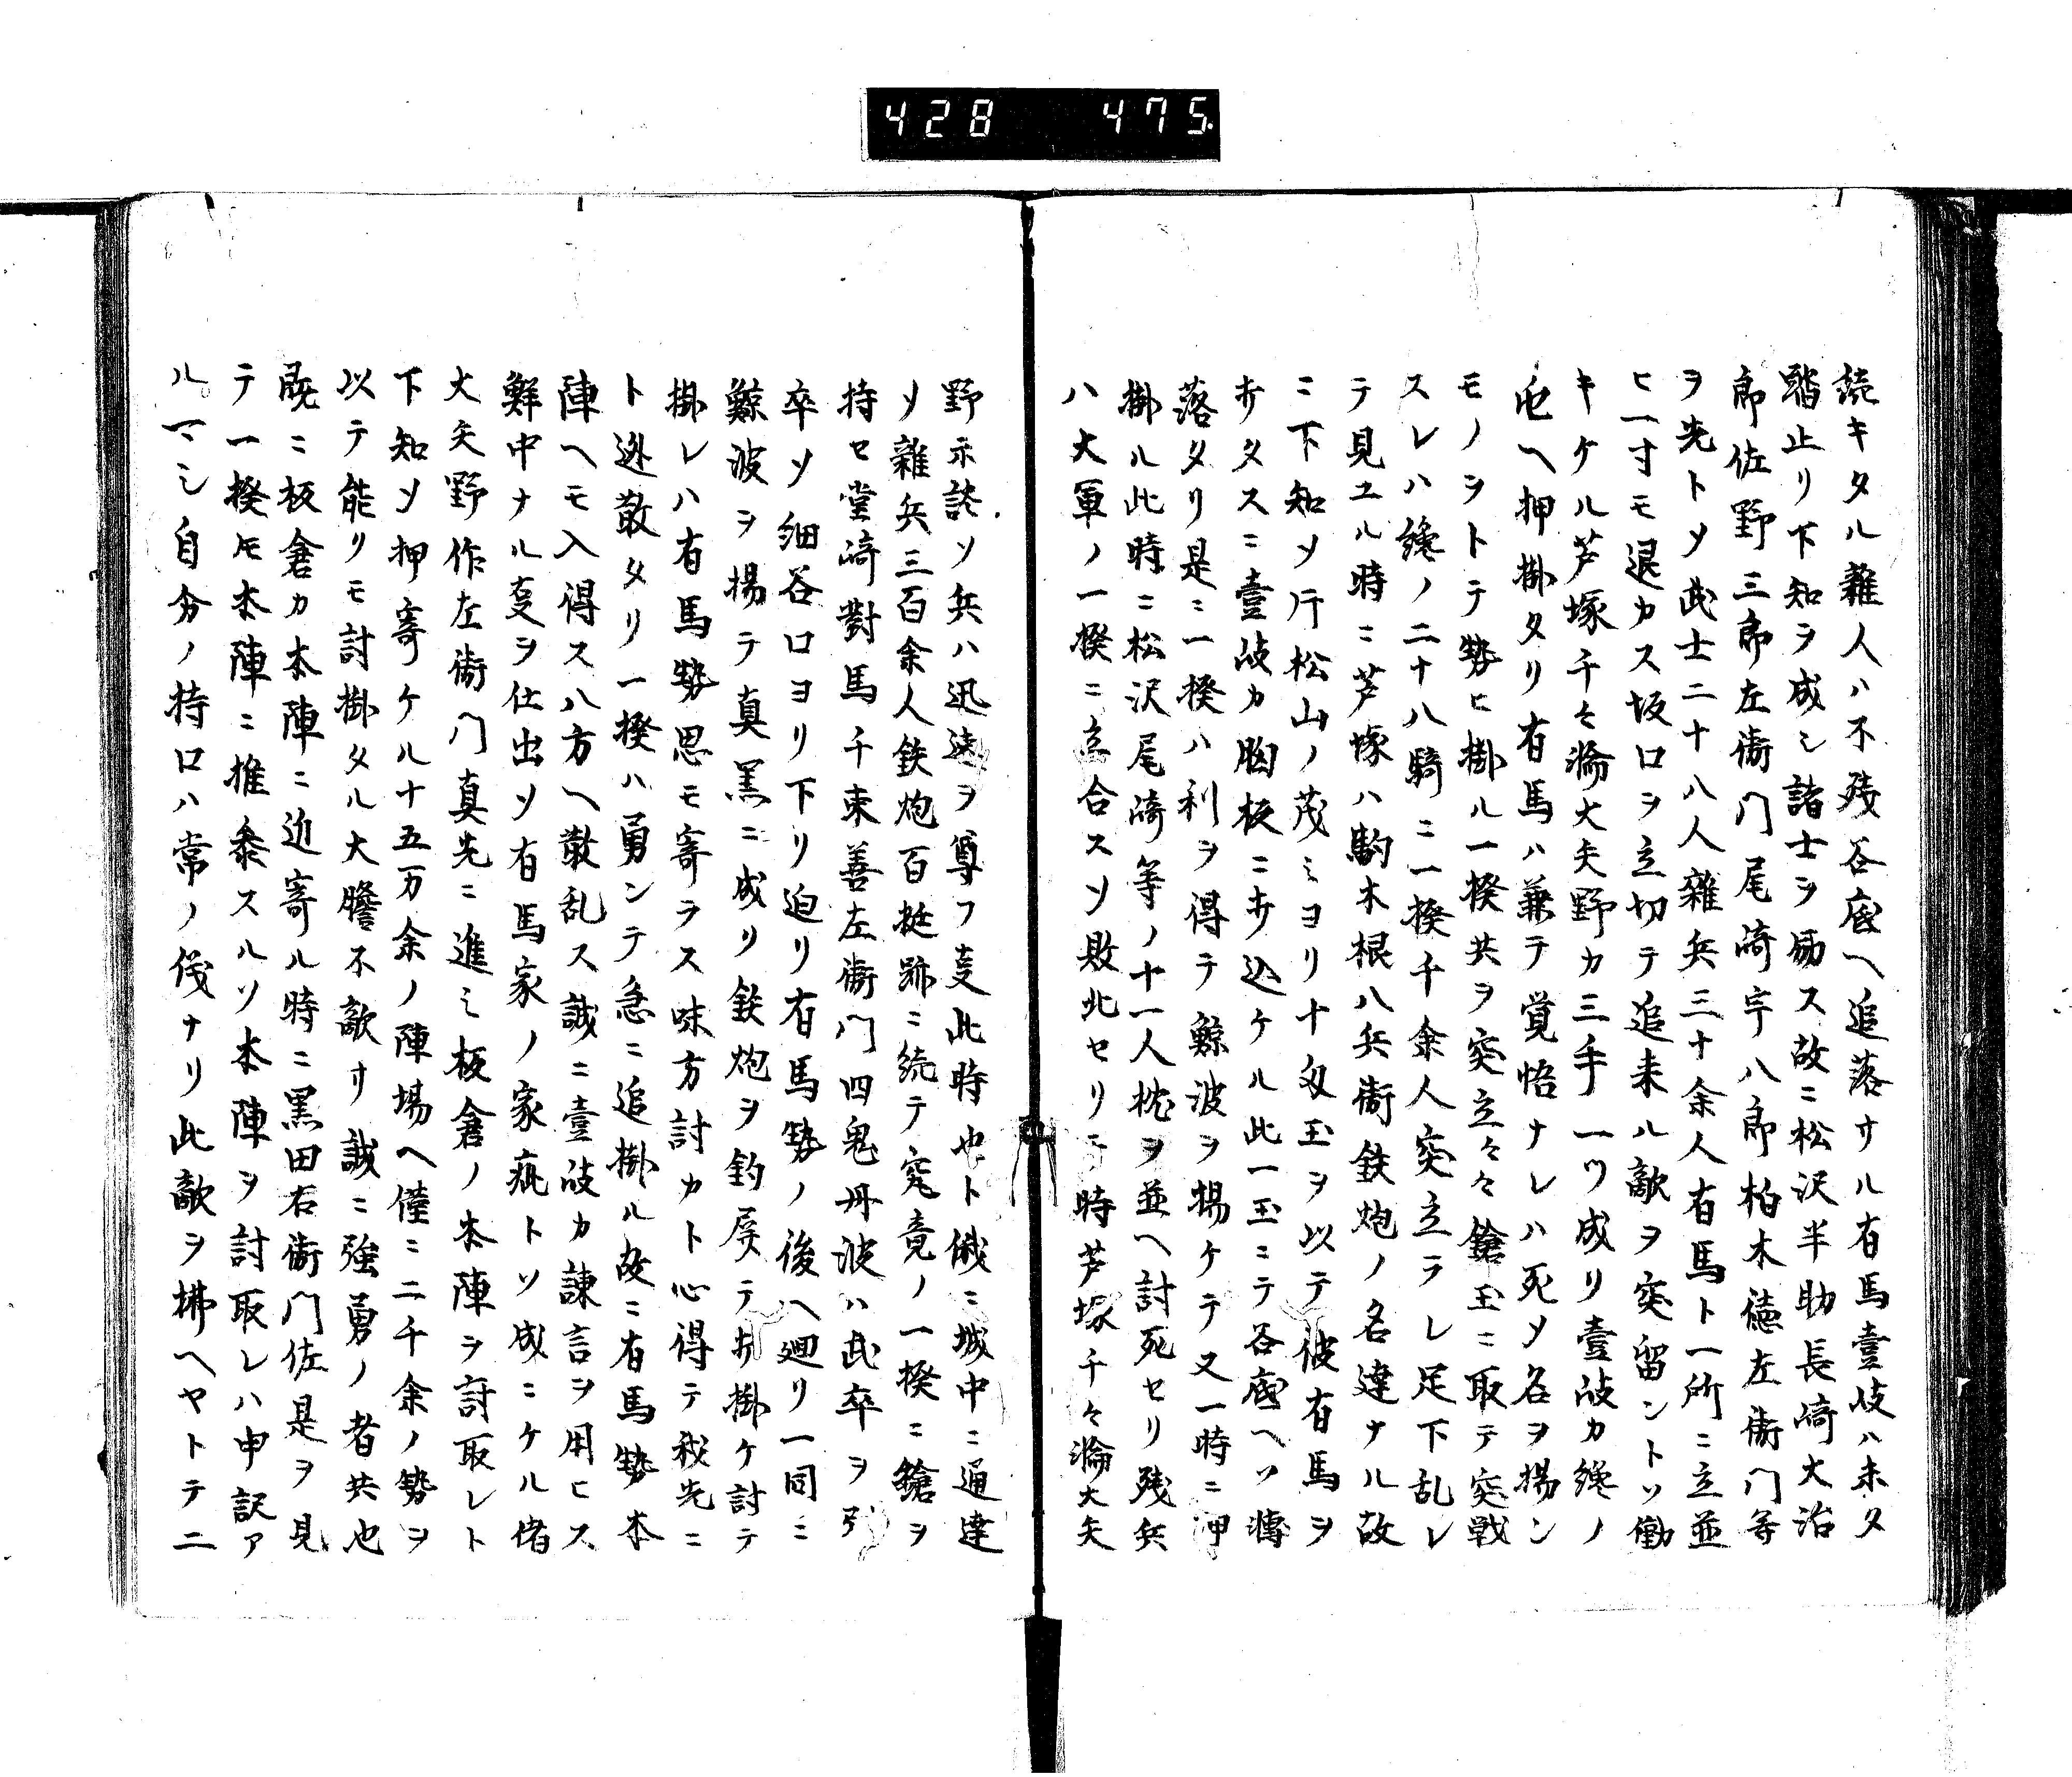 428 475
続キタル雑人ハ不残谷底ヘ追落サルル有馬壹岐ハ未タ
踏止リ下知ヲ成シ諸士ヲ励ス故ニ松沢半助長崎大治
郎佐野三郎左衛門尾崎宇八郎柏木徳左衛門等
ヲ先トソ武士二十八人雑兵三十余人有馬ト一所ニ立並
ヒ一寸モ退カス坂口ヲ立切テ追来ル敵ヲ突留ントソ働
キケル芦塚千々瀹大矢野カ三手一ツ成リ壹岐カ纔ノ
勢ヘ押掛タリ有馬ハ兼テ覚悟ナレハ死メ名ヲ揚ン
モノヲトテ勢ヒ掛ル一揆共ヲ突立々々鎗玉ニ取テ突戦
スレハ纔ノ二十八騎ニ一揆千余人突立ラレ足下乱レ
テ見ユル時ニ芦塚ハ駒木根八兵衛鉄炮ノ名達ナル故
ニ下知ソ片松山ノ茂ミヨリ十匁玉ヲ以テ彼有馬ヲ
打タスニ壹岐カ胸板ニ打込ケル此一玉ニテ谷底ヘソ轉
落タリ是ニ一揆ハ利ヲ得テ鯨波ヲ揚ケテ又一時ニ押
掛ル此時ニ松沢尾崎等ノ十一人枕ヲ並ヘ討死セリ残兵
ハ大軍ノ一揆ニ立合スソ敗北セリ時芦塚千々瀹大矢
野示談ソ兵ハ迅速ヲ尊フ支此時也ト俄ニ城中ニ通達
ソ雑兵三百余人鉄炮百挺跡ニ続テ究竟ノ一揆ニ鎗ヲ
持セ堂崎對馬千束善左衛門四鬼丹波ハ武卒ヲ引
卒ソ細谷口ヨリ下リ迫リ有馬勢ノ後ヘ廻リ一同ニ
鯨波ヲ揚テ真黒ニ成リ鉄炮ヲ釣戻テ打掛ケ討テ
掛レハ有馬勢思モ寄ラス味方討カト心得テ我先ニ
ト逃散タリ一揆ハ勇ンテ急ニ追掛ル故ニ有馬勢本
陣ヘモ入得ス八方ヘ散乱ス誠ニ壹岐カ諫言ヲ用ヒス
鮮中ナル支ヲ仕出ソ有馬家ノ家疵トソ成ニケル偖
大矢野作左衛門真先ニ進ミ板倉ノ本陣ヲ討取レト
下知ソ押寄ケル十五万余ノ陣場ヘ僅ニ二千余ノ勢ヲ
以テ能リモ討掛タル大膽不敵サ誠ニ強勇ノ者共也
既ニ板倉カ本陣ニ近寄ル時ニ黒田右衛門佐是ヲ見
テ一揆モ本陣ニ推参スルソ本陣ヲ討取レハ申訳ア
ルマシ自分ノ持口ハ常ノ伐ナリ此敵ヲ拂ヘヤトテ二